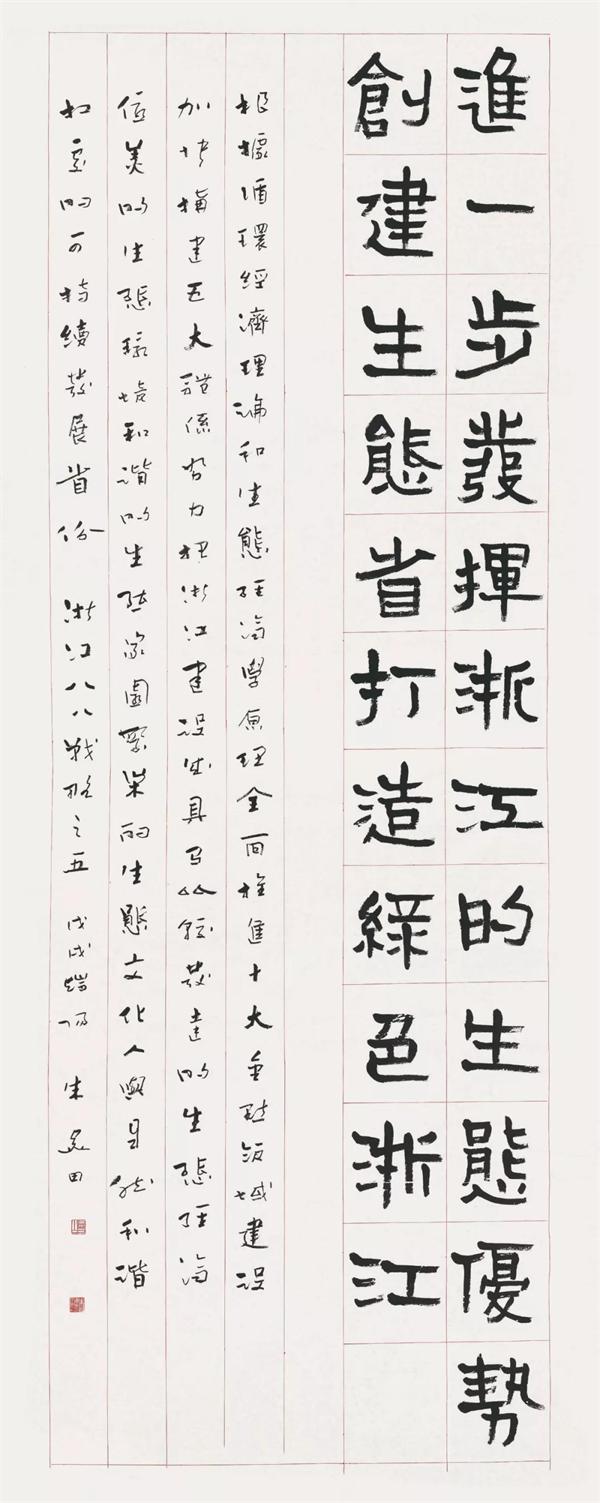 進一步發揮浙江的生態優勢
創建生態省打造綠色浙江
根據循環經濟理論和生態經濟學原理全面推進十大重點領域建設
加快構建五大體係努力把浙江建設成具有比較發達的生態經濟
優美的生態環境和諧的生態家園繁榮的生態文化人與自然和諧
相處的可持續發展省份 浙江八八戰略之五 戊戌端陽 朱田